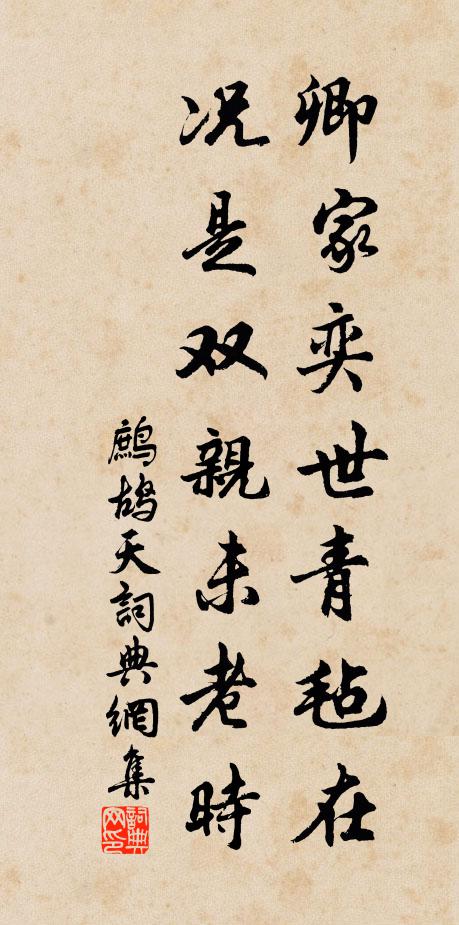 卿家奕世青毡在
况是双親未老時
鷓鴣天詞典網集
詞典网印